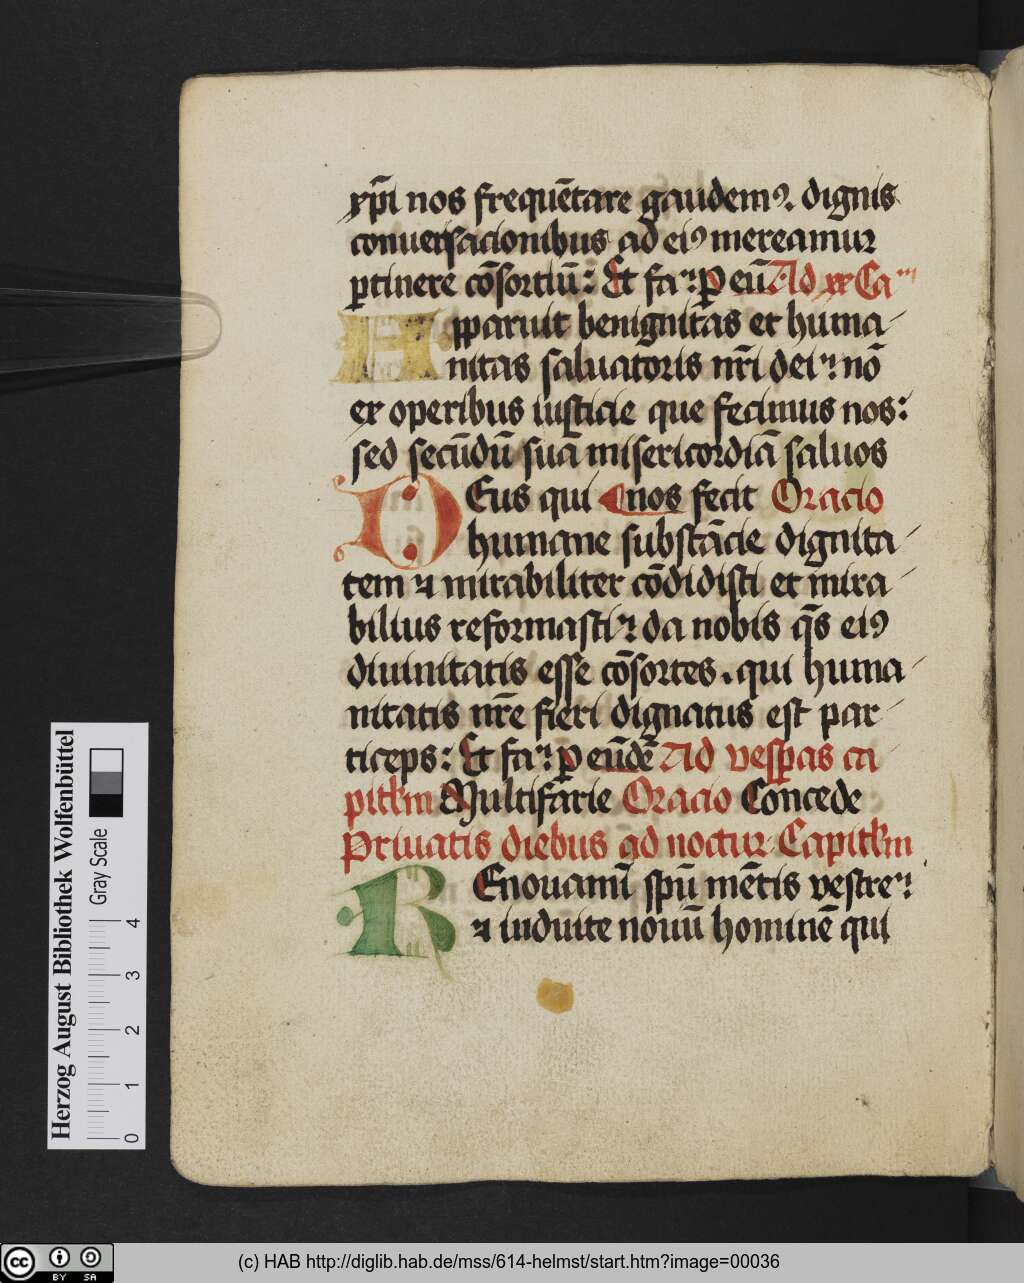 xp̄i nos frequētare gaudemꝰ. dignis
conuersacionibus ad eiꝰ mereamur
ꝑtinere cōsortiū: Et fa ꝑ eū Ad xx Ca
Apparuit benignitas et huma
nitas saluatoris nr̄i dei: nō
ex operibus iusticie que fecimus nos:
sed secūdū suā misericordiā saluos
DEus qui nos fecit Oracio
humane substācie dignita
tem ⁊ mirabiliter cōdidisti et mira
bilius reformasti: da nobis q̄s eiꝰ
diuinitatis esse cōsortes. qui huma
nitatis nr̄e fieri dignatus est par
ticeps: Et fa ꝑ eūdē Ad vesꝑas ca
pitl̄m Multifarie Oracio Concede
Priuatis diebus ad noctur Capitl̄m
REnouamī spū mētis vestre:
⁊ induite nouū hominē qui
Herzog August Bibliothek Wolfenbüttel
Gray Scale
0 1 2 3 4
cc BY SA
(c) HAB http://diglib.hab.de/mss/614-helmst/start.htm?image=00036